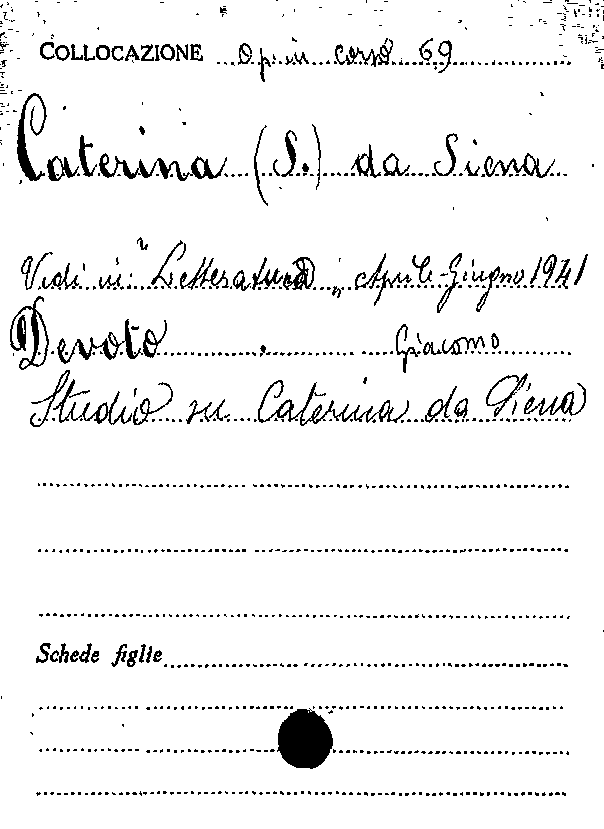 COLLOCAZIONE Op. in corso 69
Caterina (S.) da Siena
Vedi in: "Letteratura„ Aprile-Giugno 1941
Devoto Giacomo
Studio su Caterina da Siena
Schede figlie